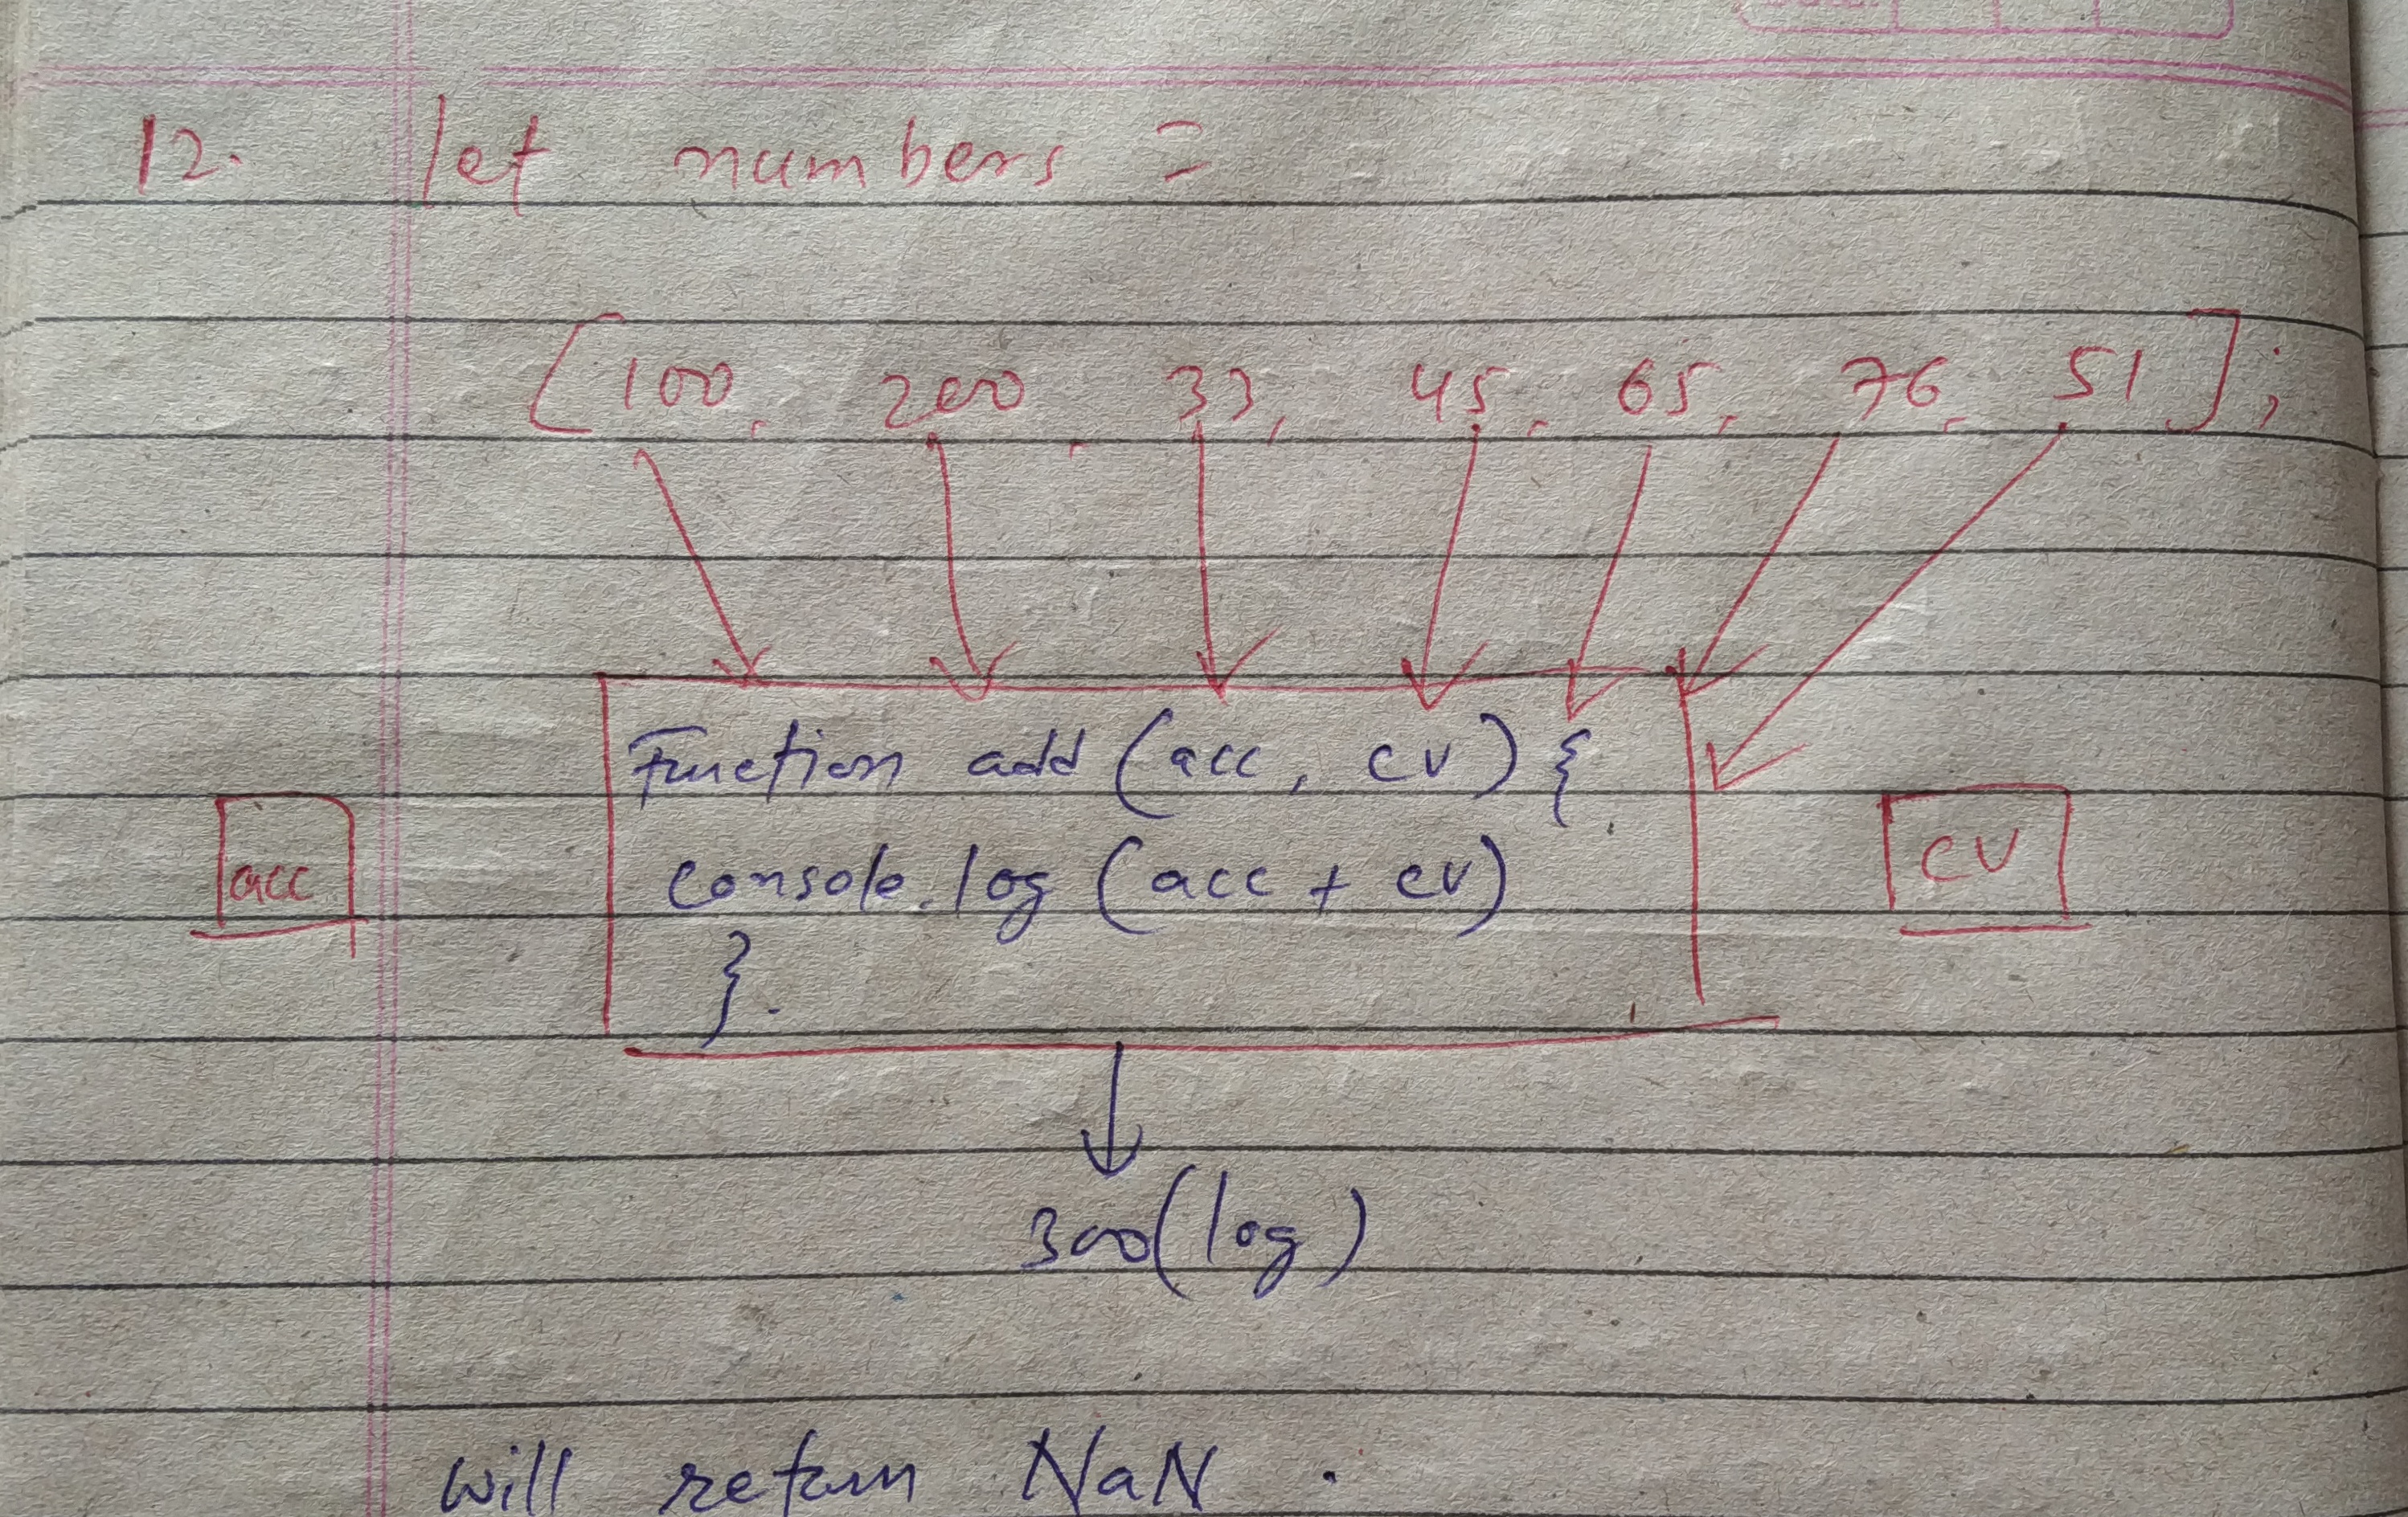 12. let numbers =
[100, 200, 33, 45, 65, 76, 51];
Function add (acc, cv) {
acc
console.log (acc + cv)
cv
}.
300(log)
will return NaN .